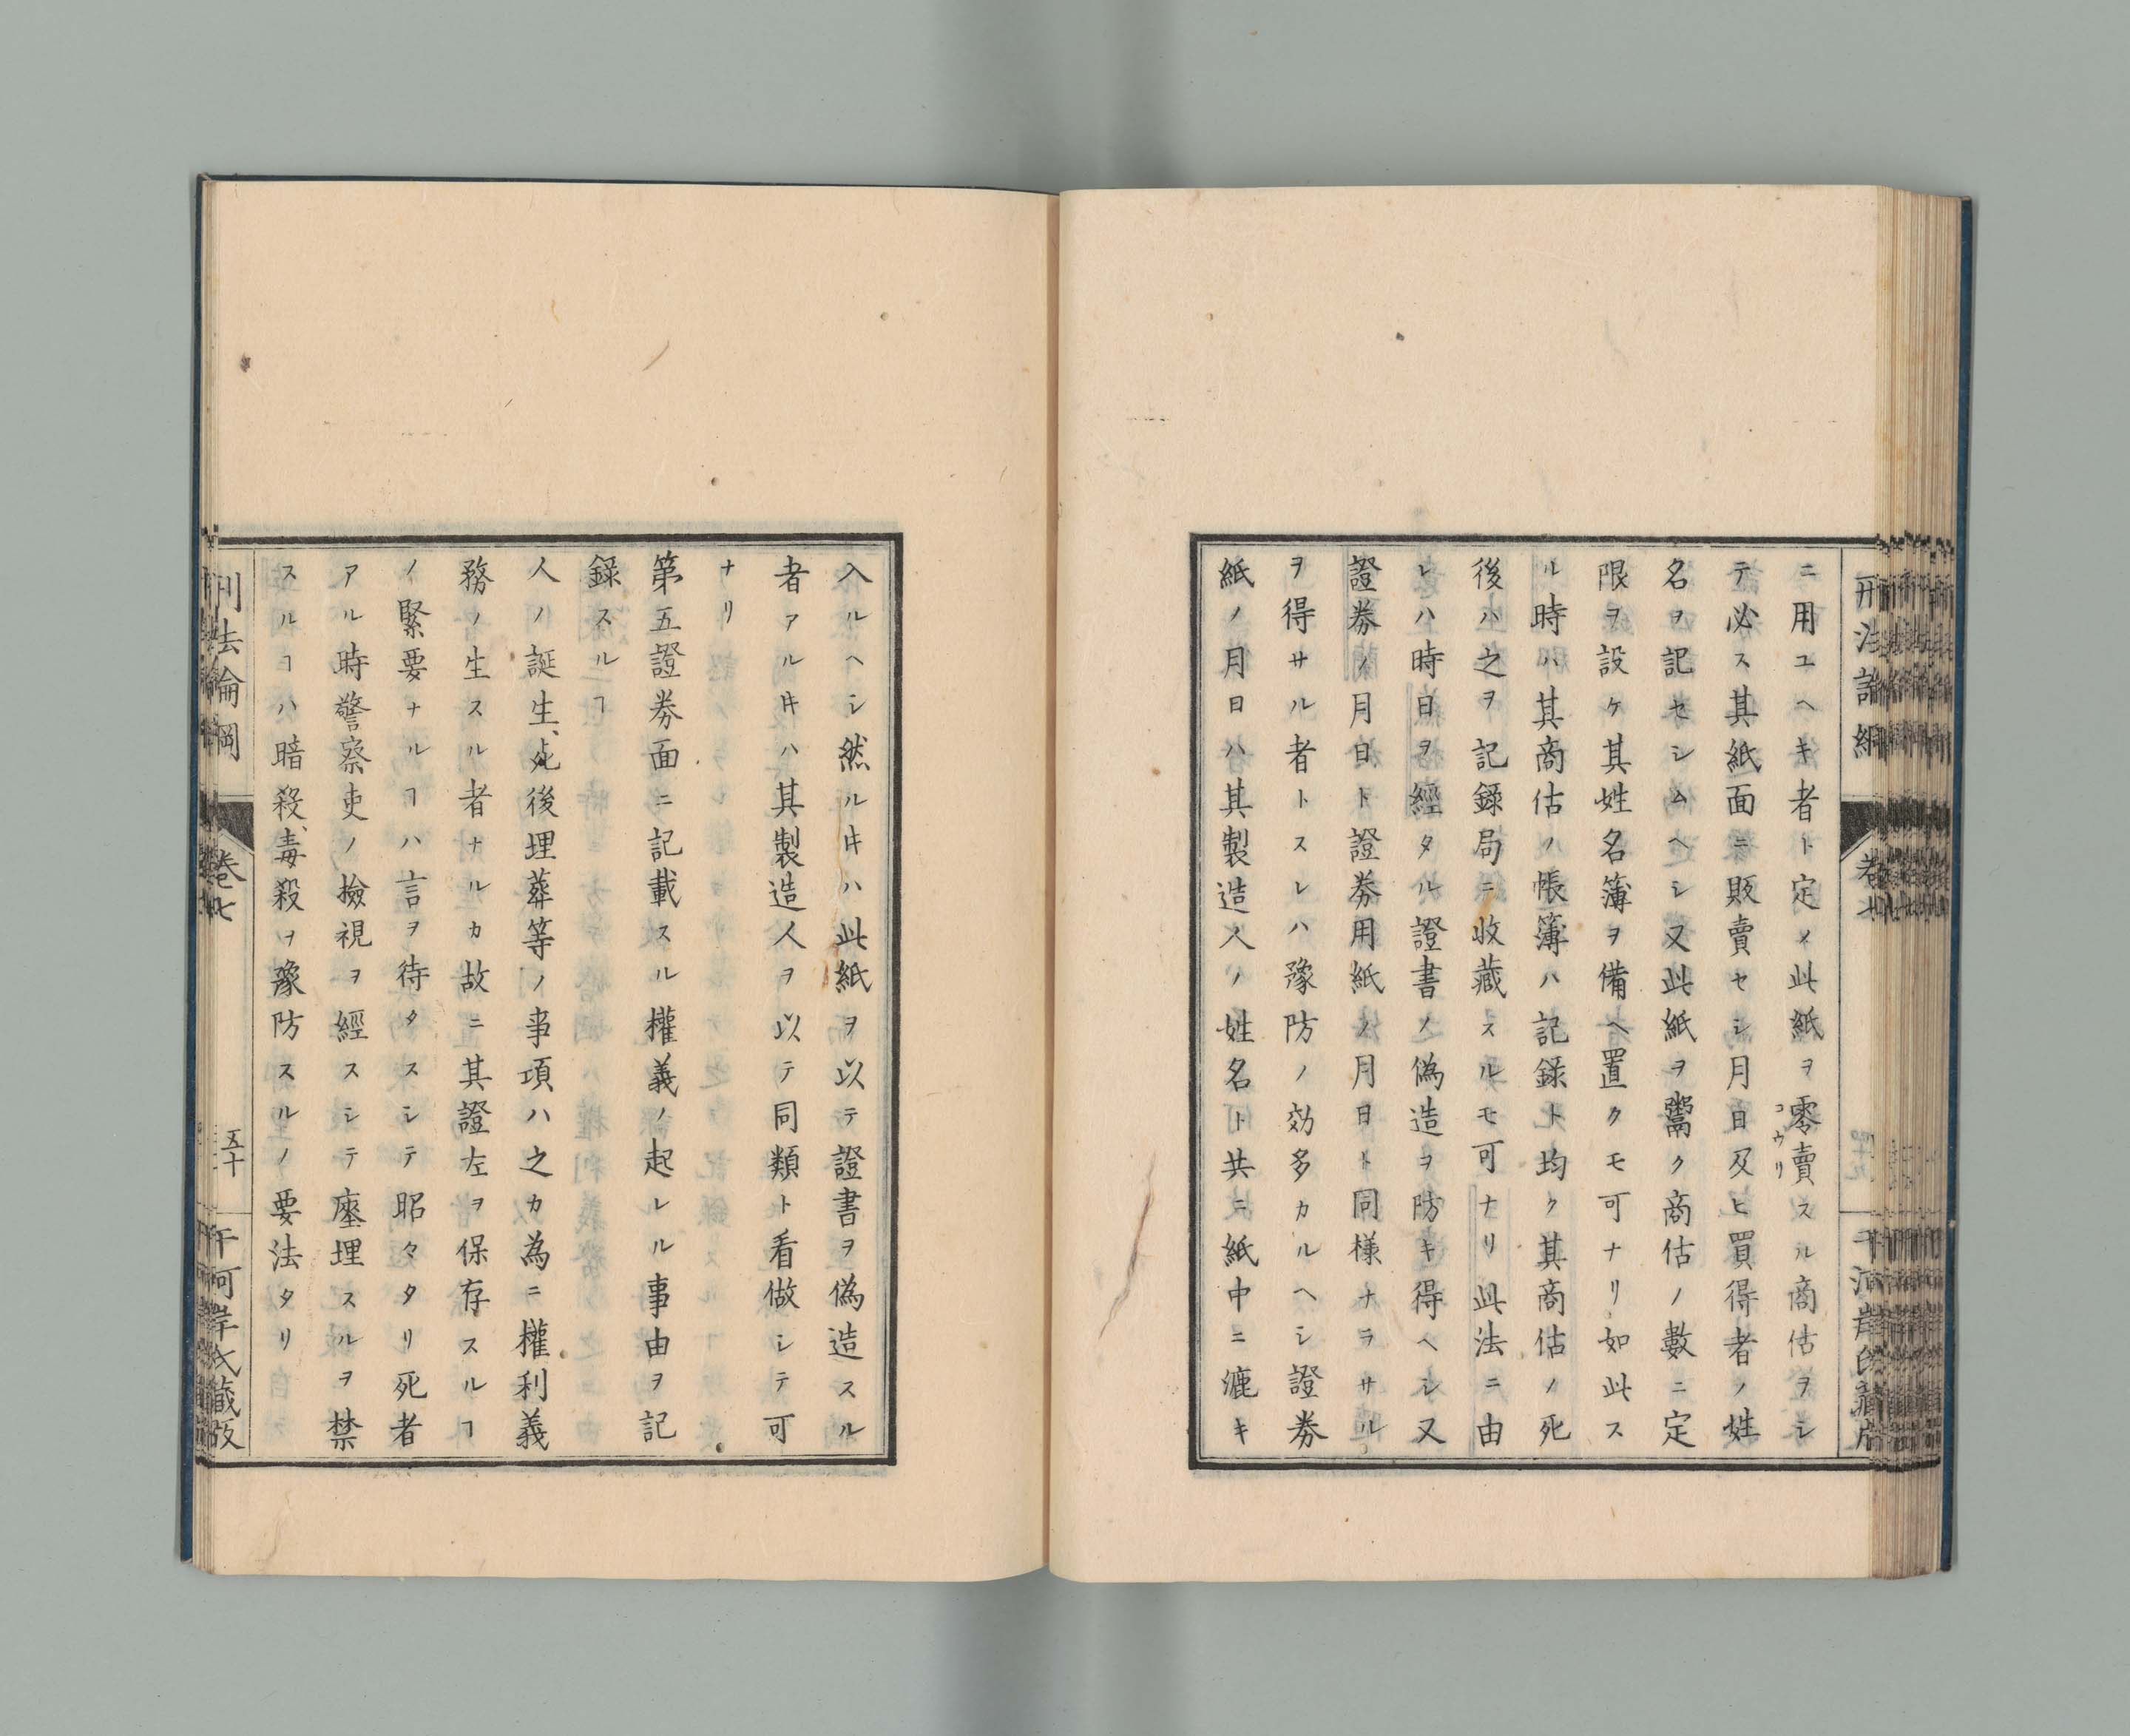 ニ用ユヘキ者ト定メ此紙ヲ零賣スル商估ヲシ
コウリ
テ必ス其紙面ニ販賣セシ月日及ヒ買得者ノ姓
名ヲ記セシムヘシ又此紙ヲ鬻ク商估ノ數ニ定
限ヲ設ケ其姓名簿ヲ備ヘ置クモ可ナリ如此ス
ル時ハ其商估ノ帳簿ハ記録ト均ク其商估ノ死
後ハ之ヲ記録局ニ收藏スルモ可ナリ此法ニ由
レハ時日ヲ經タル證書ノ偽造ヲ防キ得ヘシ又
證券ノ月日ト證券用紙ノ月日ト同樣ナラサル
ヲ得サル者トスレハ豫防ノ効多カルヘシ證券
紙ノ月日ハ其製造人ノ姓名ト共ニ紙中ニ漉キ
入ルヘシ然ル𪜈ハ此紙ヲ以テ證書ヲ偽造スル
者アル𪜈ハ其製造人ヲ以テ同類ト看做シテ可
ナリ
第五證券面ニ記載スル權義ノ起レル事由ヲ記
録スルヿ
人ノ誕生、死後埋葬等ノ事項ハ之カ為ニ權利義
務ノ生スル者ナルカ故ニ其證左ヲ保存スルヿ
ノ緊要ナルヿハ言ヲ待タスシテ昭タタリ死者
アル時警察吏ノ撿視ヲ經スシテ塵埋スルヲ禁
スルヿハ暗殺、毒殺ヲ豫防スルノ要法タリ
刑法論綱
卷七
五十
何岸氏藏版